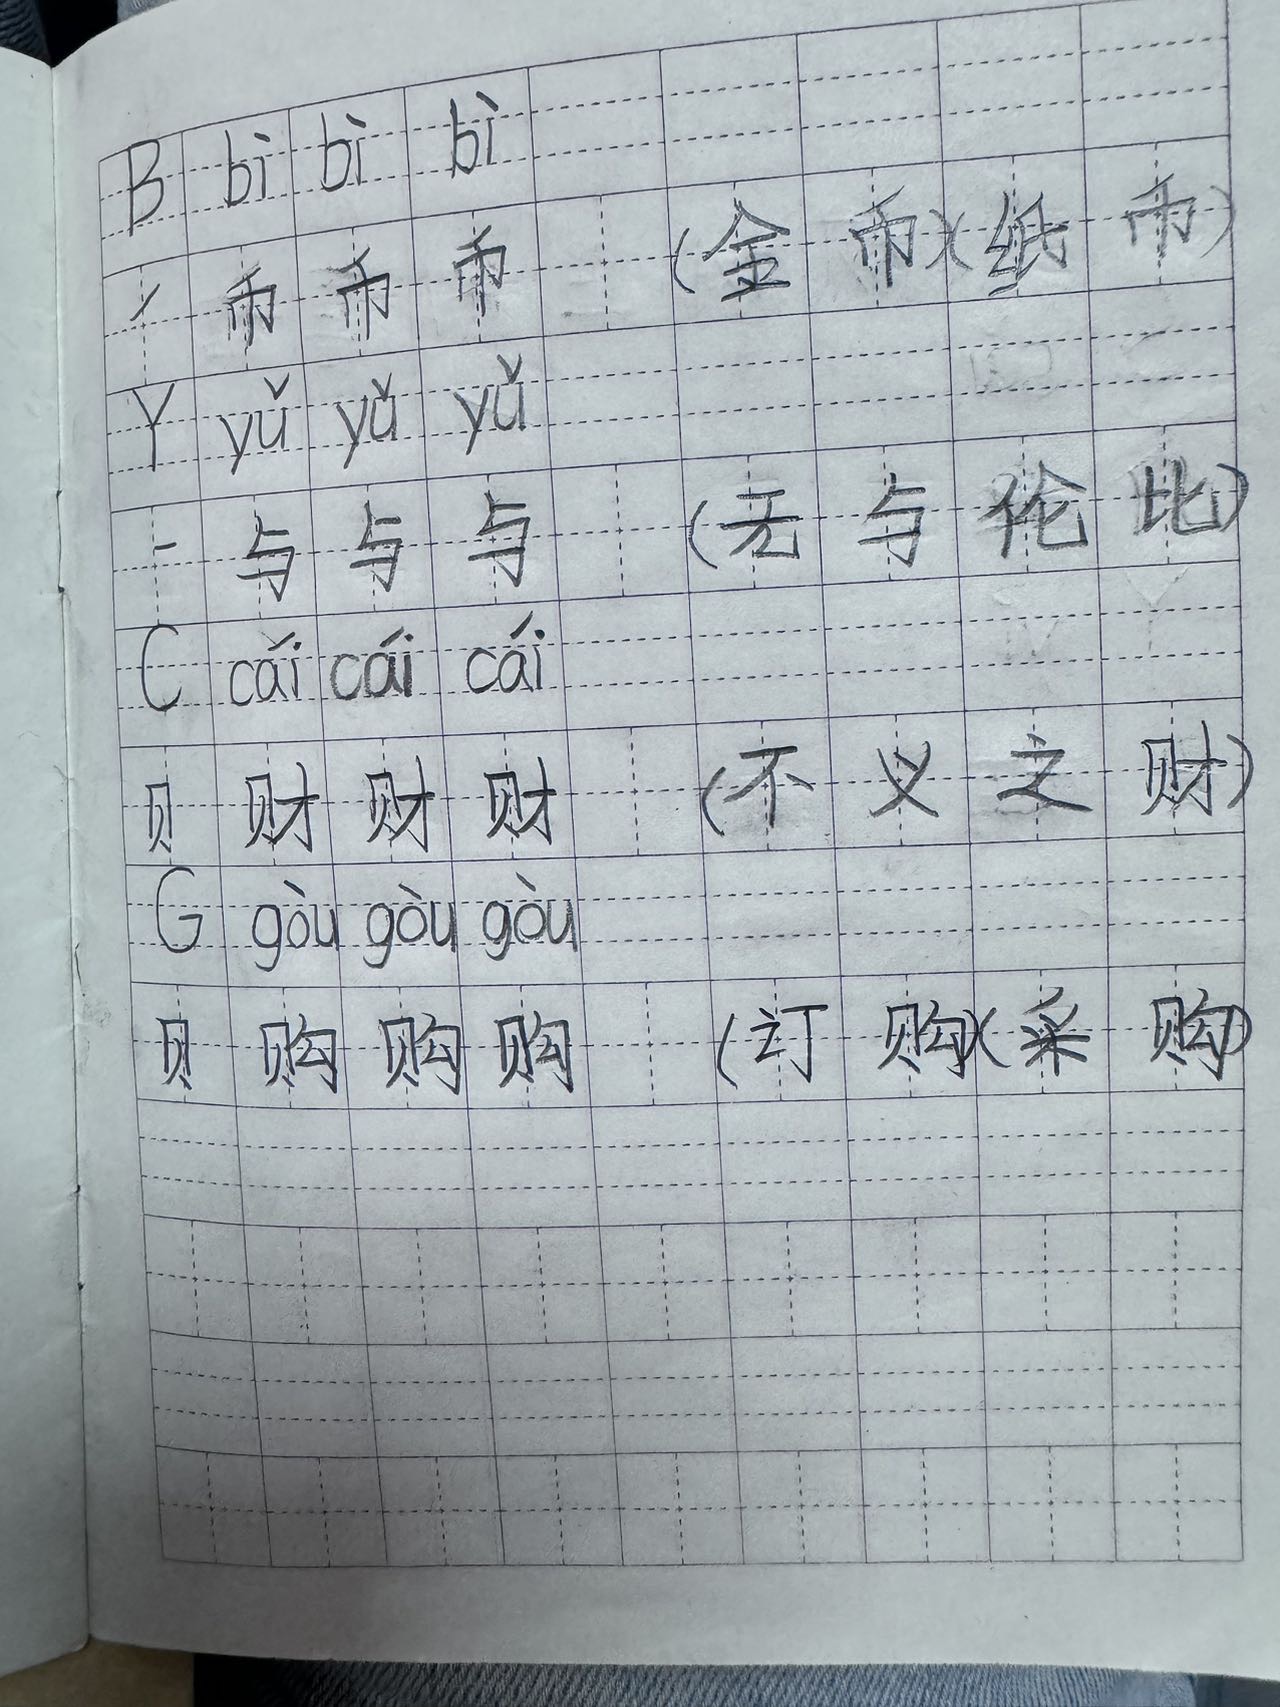 B bì bì bì
丿 币 币 币 (金币)(纸币)
Y yǔ yǔ yǔ
一 与 与 与 (无与伦比)
C cái cái cái
贝 财 财 财 (不义之财)
G gòu gòu gòu
贝 购 购 购 (订购)(采购)